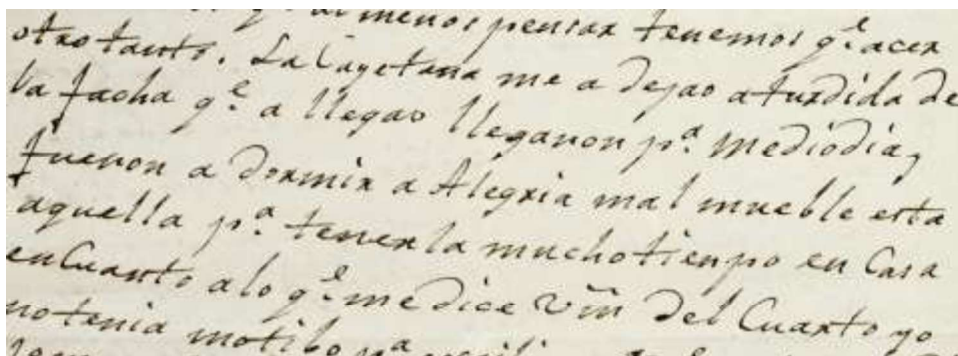 al menos pensar tenemos q.e acer
otro tanto. La Cayetana me a dejao aturdida de
la facha q.e a llegao llegaron p.a mediodia,
fueron a dormir a Alegria mal mueble esta
aquella p.a tenerla muchotienpo en Casa
encuanto alo q.e medice Vm del Cuarto yo
notenia motibo p.a